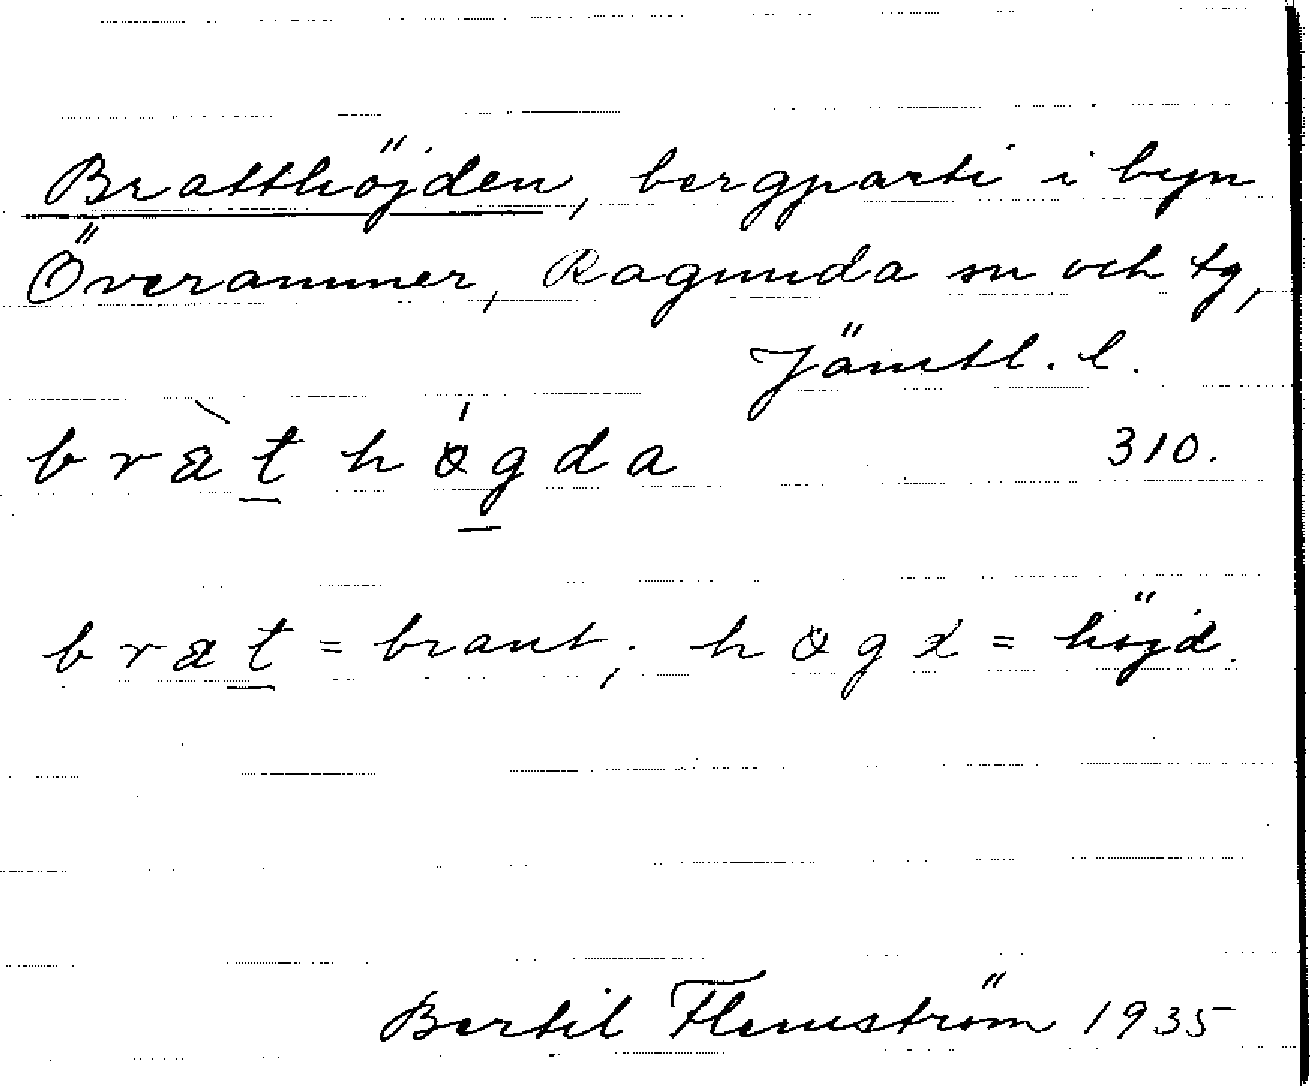 Bratthöjden, bergparti i byn
Överammer, Ragunda sn och tg,
Jämtl. l.
bràt̲hǿg̲da 310.
brat̲ = brant; høgd = höjd.
Bertil Flemström 1935